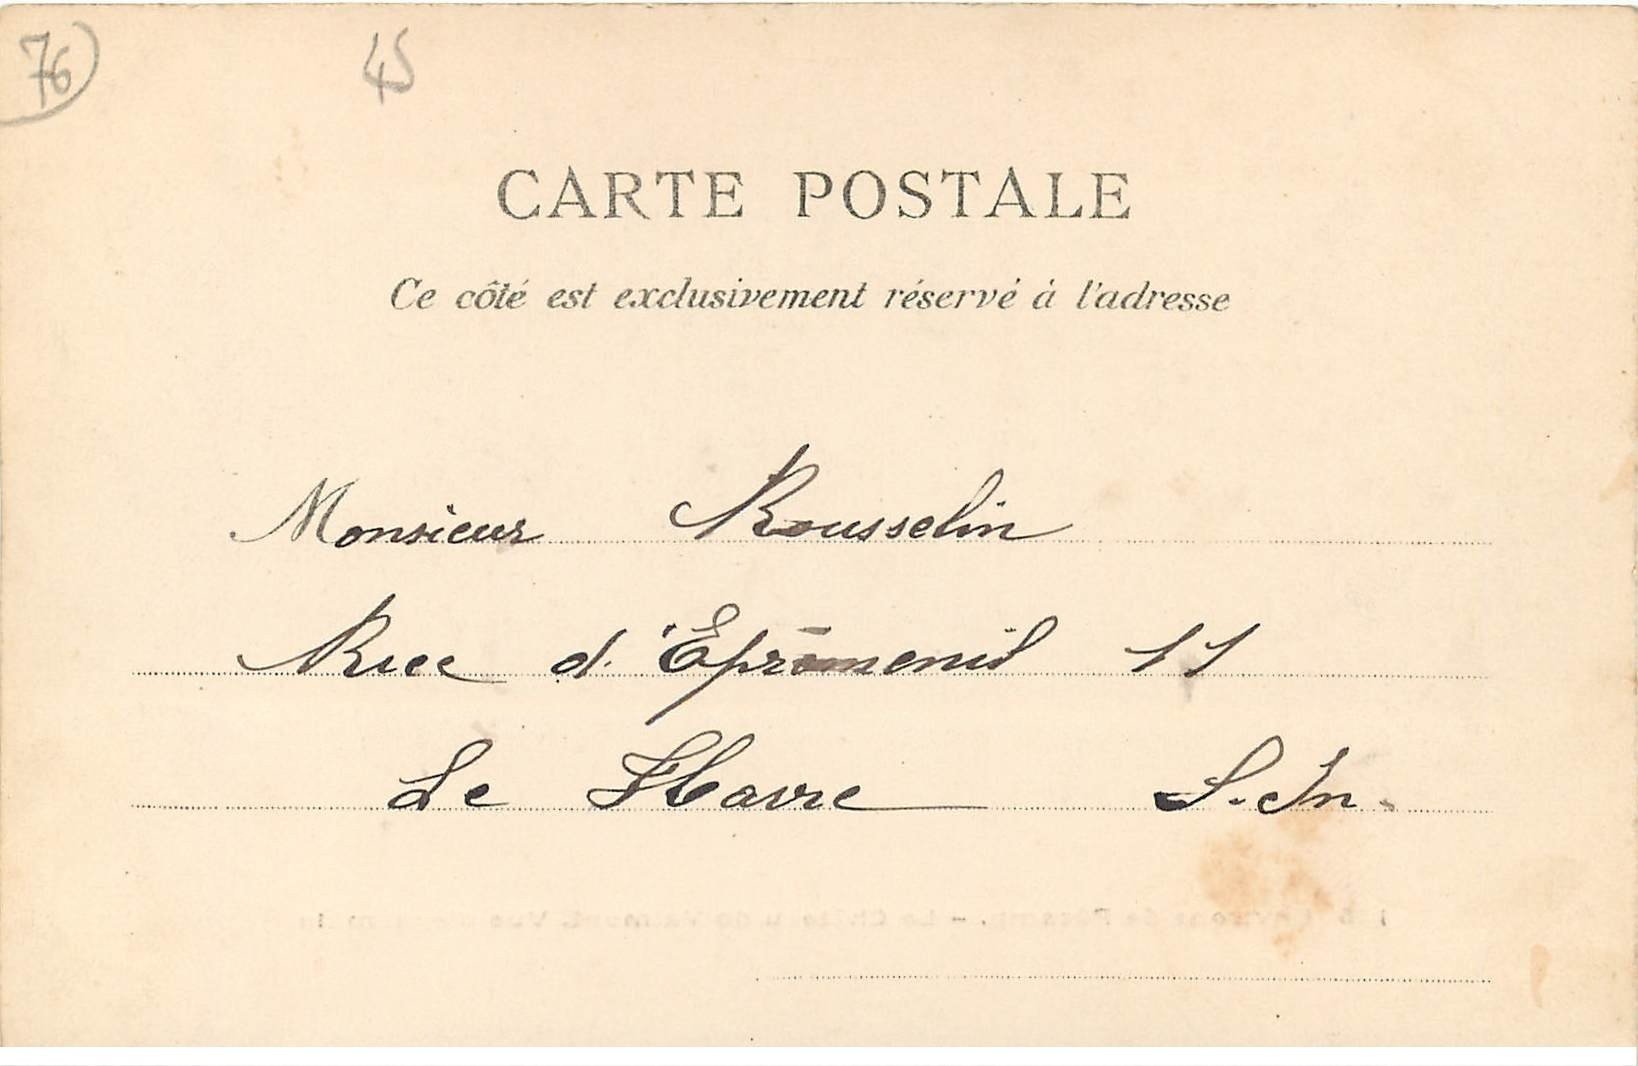 76
45
CARTE POSTALE
Ce côté est exclusivement réservé à l'adresse
Monsieur Rousselin
Rue d'Eprémenil 11
Le Havre S. In.